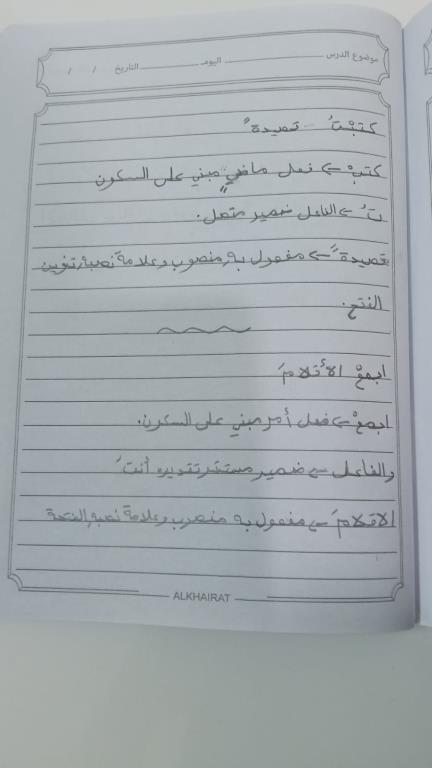 موضوع الدرس ـــــــــ اليوم ـــــــــ التاريخ / /
كتبْتُ قصيدةً
كتبْ ← فعل ماضي مبني على السكون
تُ ← الفاعل ضمير متصل.
قصيدةً ← مفعول به منصوب وعلامة نصبه تنوين
الفتح.
اجمعْ الأقلامَ
اجمعْ ← فعل أمر مبني على السكون.
والفاعل ← ضمير مستتر تقديره أنتَ
الاقلامَ ← مفعول به منصوب وعلامة نصبه الفتحة
ALKHAIRAT